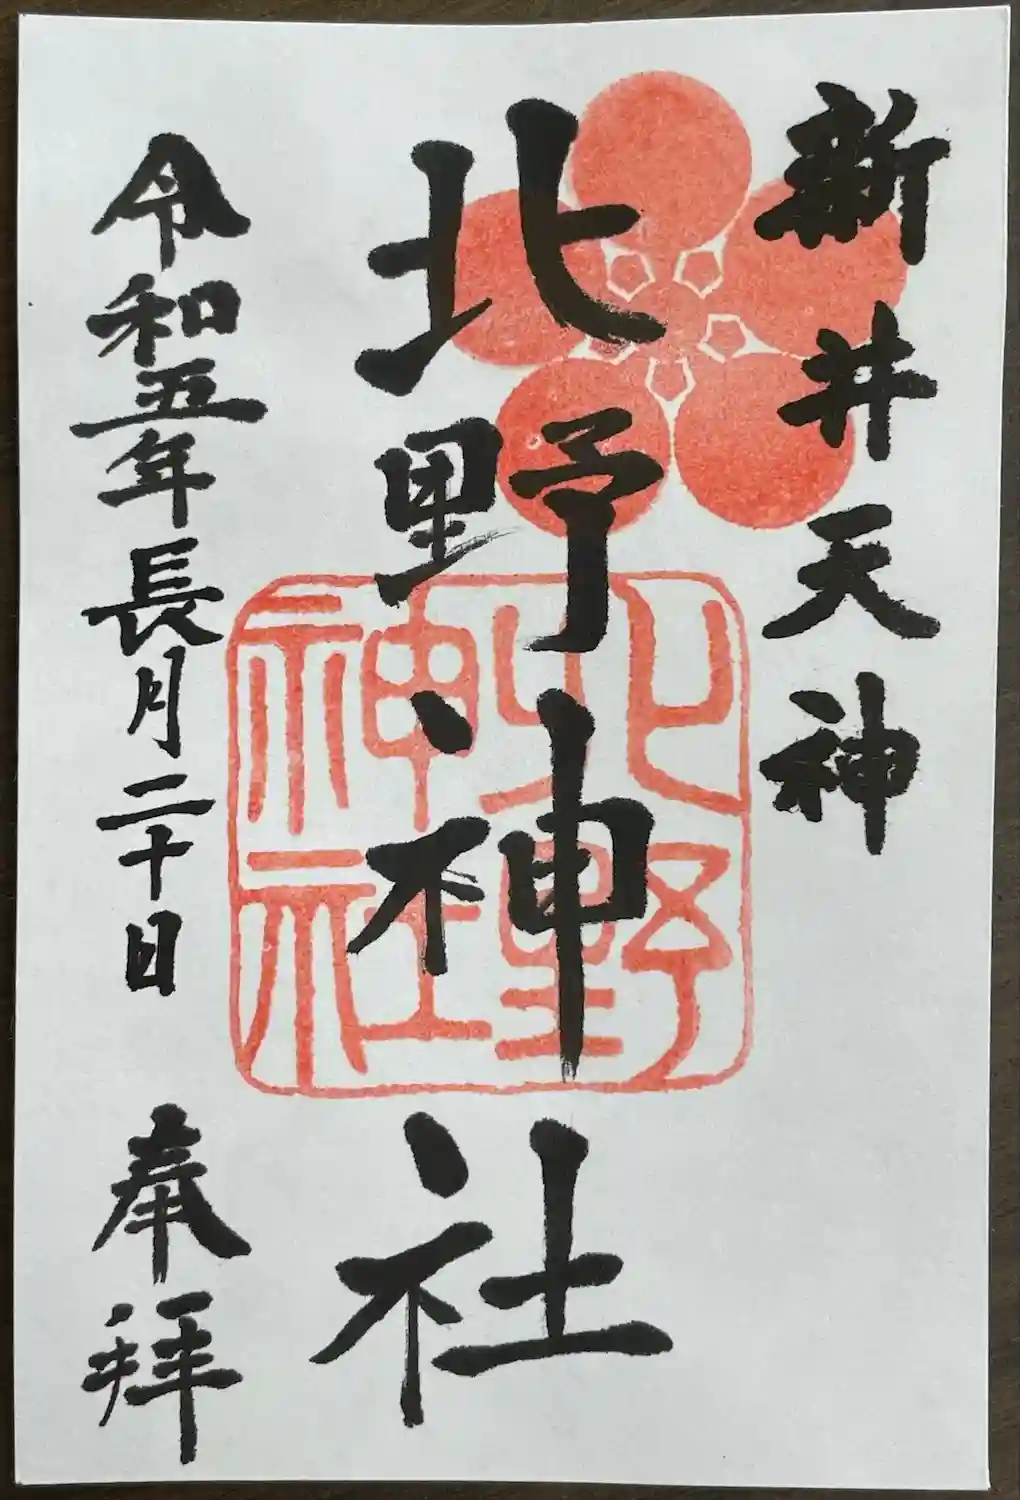 新井天神
北野神社
令和五年長月二十日 奉拝
北野神社